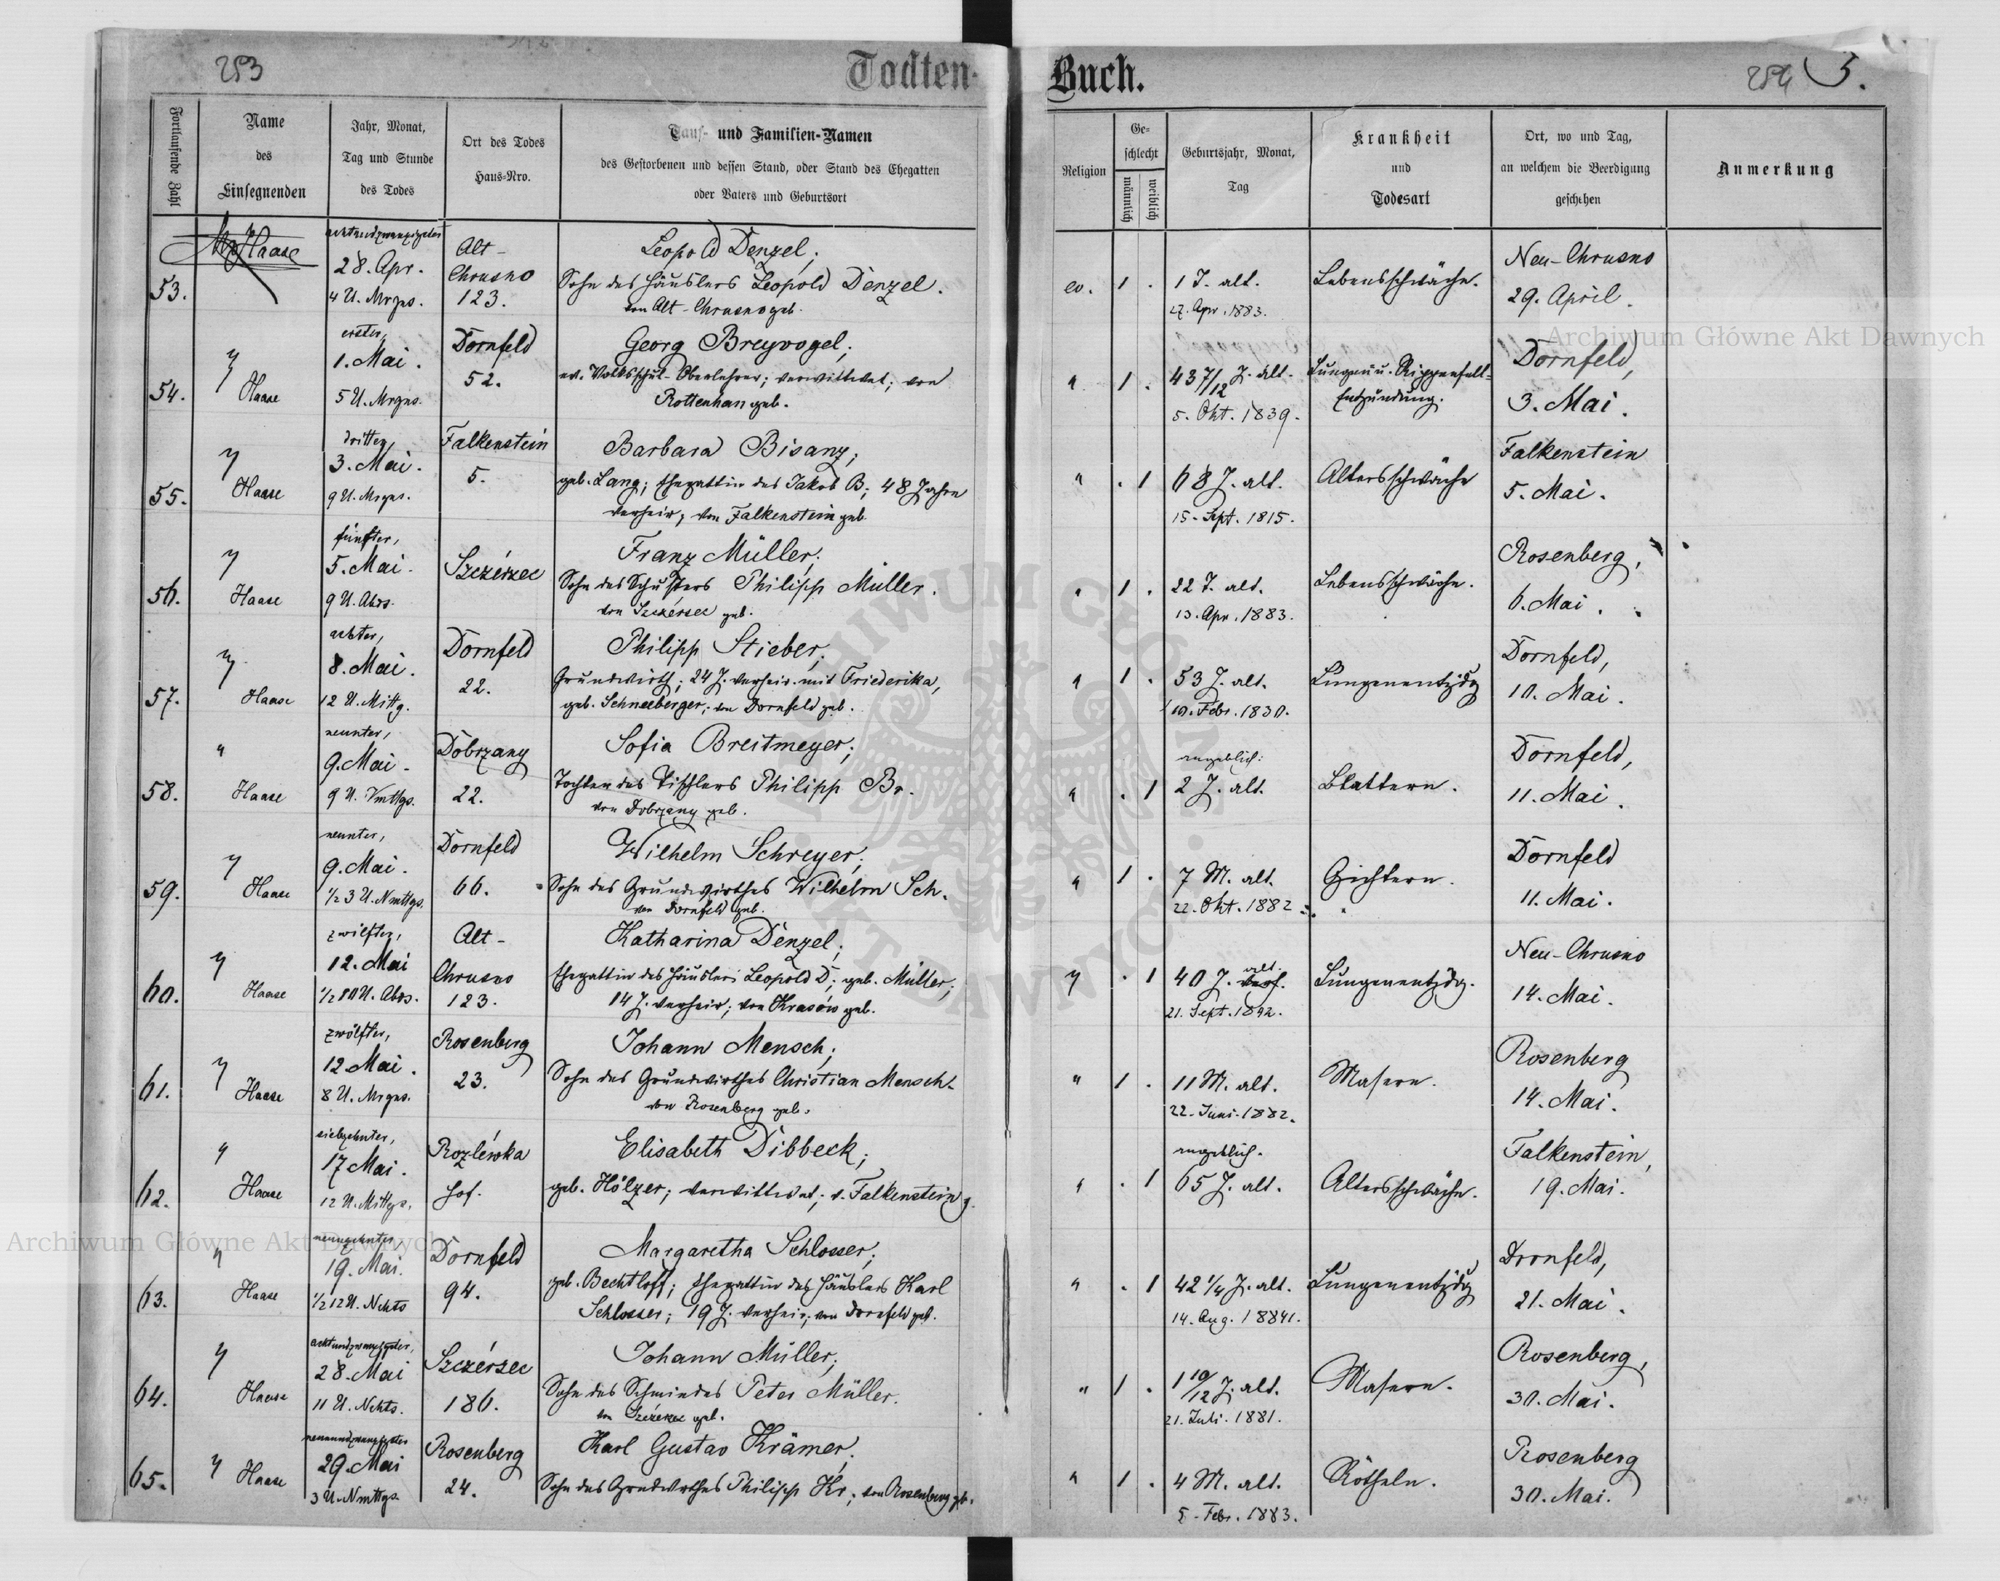 253
Todten-
Buch.
254 5.
Fortlaufende Zahl
Name
des
Einsegnenden
Jahr, Monat,
Tag und Stunde
des Todes
Ort des Todes
Haus-Nro.
Tauf- und Familien-Namen
des Gestorbenen und dessen Stand, oder Stand des Ehegatten
oder Vaters und Geburtsort
Religion
Ge-
schlecht
männlich
weiblich
Geburtsjahr, Monat,
Tag
Krankheit
und
Todesart
Ort, wo und Tag,
an welchem die Beerdigung
geschehen
Anmerkung
53.
Haase
achtundzwanzigster
28. Apr.
4 U. Mrgns.
Alt-
Chrusno
123.
Leopold Denzel;
Sohn des Häuslers Leopold Denzel.
von Alt-Chrusno geb.
ev. 1 .
1 T. alt.
27. Apr. 1883.
Lebensschwäche.
Neu-Chrusno
29. April.
54.
" Haase
erster,
1. Mai.
5 U. Mrgns.
Dornfeld
52.
Georg Breyvogel;
ev. Volksschul-Oberlehrer; verwittwet; von
Rottenhan geb.
" 1 .
43 7/12 J. alt.
5. Okt. 1839.
Lungen u. Rippenfell-
Entzündung.
Dornfeld,
3. Mai.
55.
" Haase
dritter,
3. Mai.
9 U. Mrgns.
Falkenstein
5.
Barbara Bisanz;
geb. Lang; Ehegattin des Jakob B; 48 Jahre
verheir; von Falkenstein geb.
" . 1
68 J. alt.
15. Sept. 1815.
Altersschwäche
Falkenstein
5. Mai.
56.
" Haase
fünfter,
5. Mai.
9 U. Abds.
Szczérzec
Franz Müller;
Sohn des Schusters Philipp Müller.
von Szczérzec geb.
" 1 .
22 T. alt.
13. Apr. 1883.
Lebensschwäche.
Rosenberg,
6. Mai.
57.
" Haase
achter,
8. Mai.
12 U. Mittg.
Dornfeld
22.
Philipp Stieber;
Grundwirth; 24 J. verheir. mit Friederika,
geb. Schneeberger; von Dornfeld geb.
" 1 .
53 J. alt.
10. Febr. 1830.
Lungenentzdg
Dornfeld,
10. Mai.
58.
" Haase
neunter,
9. Mai.
9 U. Vmttgs.
Dobrzany
22.
Sofia Breitmeyer;
Tochter des Tischlers Philipp Br.
von Dobrzany geb.
" . 1
angeblich:
2 J. alt.
Blattern.
Dornfeld,
11. Mai.
59.
" Haase
neunter,
9. Mai.
1/2 3 U. Nmttgs.
Dornfeld
66.
Wilhelm Schreyer;
Sohn des Grundwirthes Wilhelm Sch.
von Dornfeld geb.
" 1 .
7 M. alt.
22. Okt. 1882
Gichtern.
Dornfeld
11. Mai.
60.
" Haase
zwölfter,
12. Mai
1/2 10 U. Abds.
Alt-
Chrusno
123.
Katharina Denzel;
Ehegattin des Häuslers Leopold D; geb. Müller;
14 J. verheir; von Krasów geb.
" . 1
40 J. alt.
21. Sept. 1842.
Lungenentzdg.
Neu-Chrusno
14. Mai.
61.
" Haase
zwölfter,
12 Mai.
8 U. Mrgns.
Rosenberg
23.
Johann Mensch;
Sohn des Grundwirthes Christian Mensch.
von Rosenberg geb.
" 1 .
11 M. alt.
22. Juni. 1882.
Masern.
Rosenberg
14. Mai.
62.
" Haase
siebzehnter,
17 Mai.
12 U. Mittgs.
Rozlewka
Hof.
Elisabeth Dibbeck;
geb. Hölzer; verwittwet; v. Falkenstein g.
" . 1
angeblich.
65 J. alt.
Altersschwäche.
Falkenstein,
19. Mai.
63.
" Haase
neunzehnter,
19. Mai.
1/2 12 U. Nchts
Dornfeld
94.
Margaretha Schlosser;
geb. Bechtloff; Ehegattin des Häuslers Karl
Schlosser; 19 J. verheir; von Dornfeld geb.
" . 1
42 1/4 J. alt.
14. Aug. 18841.
Lungenentzdg
Dornfeld,
21. Mai.
64.
" Haase
achtundzwanzigster,
28. Mai
11 U. Nchts.
Szczérzec
186.
Johann Müller;
Sohn des Schmiedes Peter Müller.
von Szczérzec geb.
" 1 .
1 10/12 J. alt.
21. Juli. 1881.
Masern.
Rosenberg,
30. Mai.
65.
" Haase
neunundzwanzigster
29. Mai
3 U. Nmttgs.
Rosenberg
24.
Karl Gustav Krämer
Sohn des Grndwirthes Philipp Kr; von Rosenberg geb.
" 1 .
4 M. alt.
5. Febr. 1883.
Rötheln.
Rosenberg
30. Mai.
Archiwum Główne Akt Dawnych
Archiwum Główne Akt Dawnych
ARCHIWUM GŁÓWNE AKT DAWNYCH